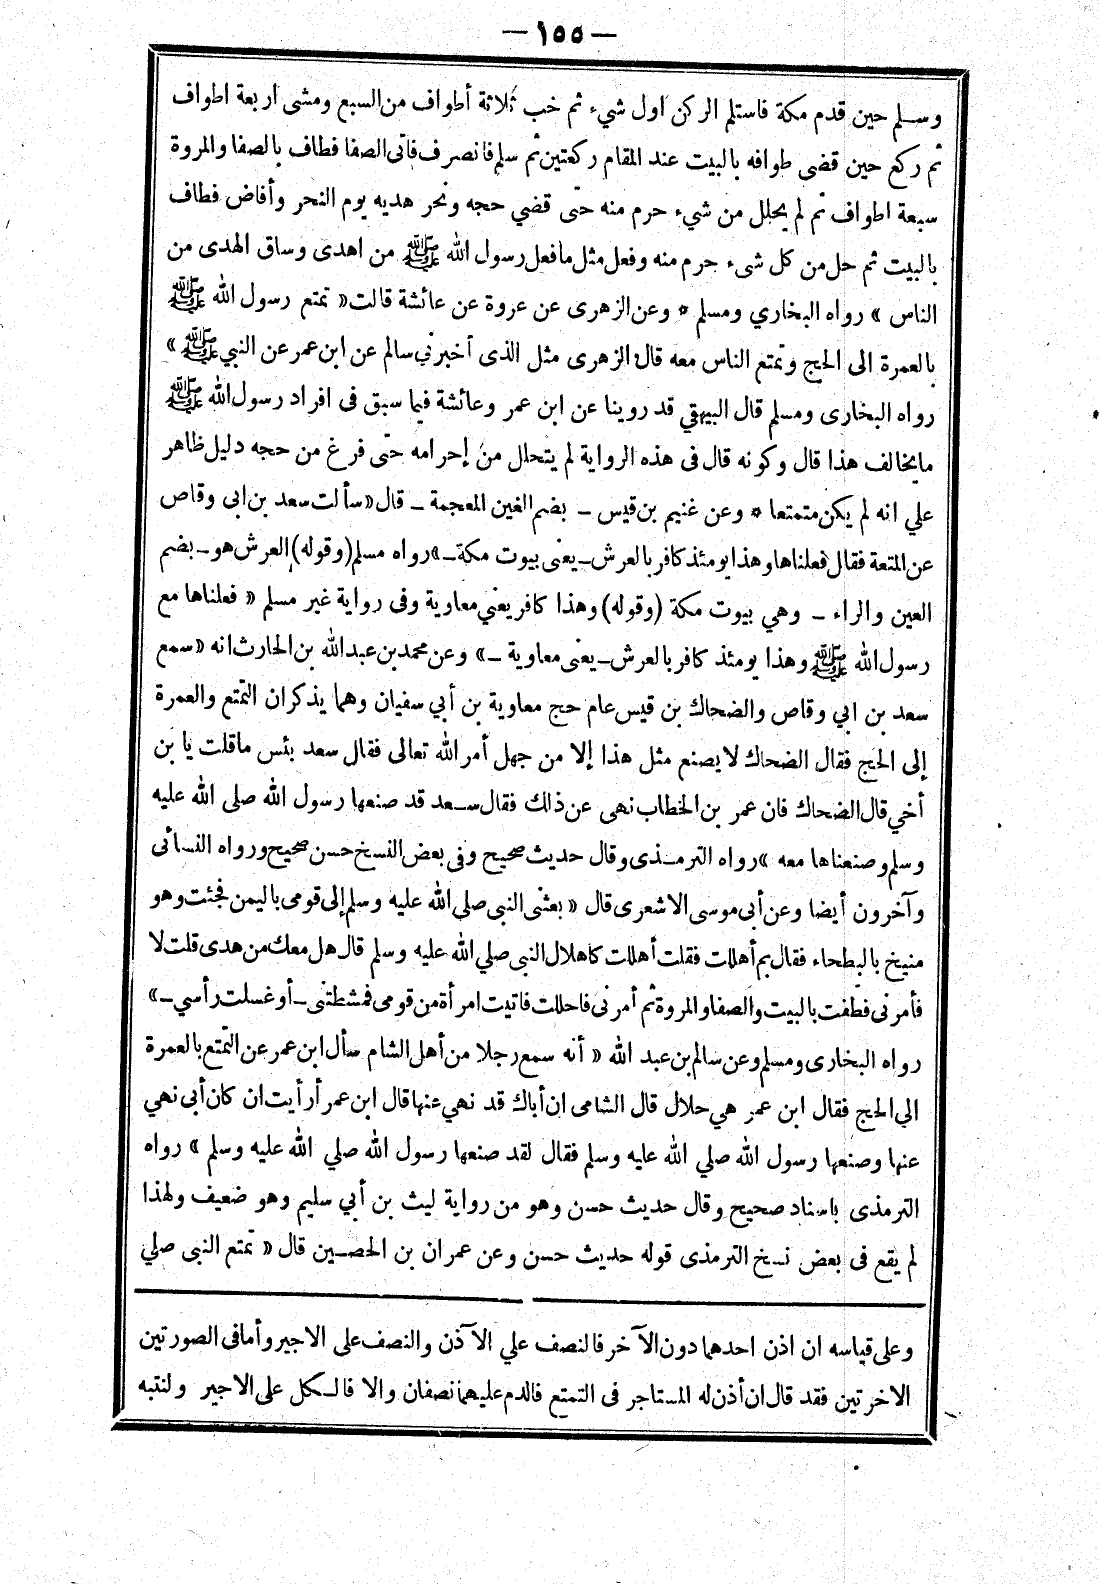 — ١٥٥ —
وسلم حين قدم مكة فاستلم الركن اول شيء ثم خب ثلاثة أطواف من السبع ومشى اربعة اطواف
ثم ركع حين قضى طوافه بالبيت عند المقام ركعتين ثم سلم فانصرف فاتى الصفا فطاف بالصفا والمروة
سبعة اطواف ثم لم يحلل من شيء حرم منه حتى قضي حجه ونحر هديه يوم النحر وأفاض فطاف
بالبيت ثم حل من كل شىء حرم منه وفعل مثل مافعل رسول الله ﷺ من اهدى وساق الهدى من
الناس » رواه البخاري ومسلم * وعن الزهرى عن عروة عن عائشة قالت « تمتع رسول الله ﷺ
بالعمرة الى الحج وتمتع الناس معه قال الزهرى مثل الذى أخبرني سالم عن ابن عمر عن النبي ﷺ »
رواه البخارى ومسلم قال البيهقي قد روينا عن ابن عمر وعائشة فيما سبق فى افراد رسول الله ﷺ
مايخالف هذا قال وكونه قال فى هذه الرواية لم يتحلل من إحرامه حتى فرغ من حجه دليل ظاهر
علي انه لم يكن متمتعا * وعن غنيم بن قيس – بضم الغين المعجمة – قال « سألت سعد بن ابى وقاص
عن المتعة فقال فعلناها وهذا يومئذ كافر بالعرش – يعنى بيوت مكة – » رواه مسلم (وقوله) العرش هو – بضم
العين والراء – وهي بيوت مكة (وقوله) وهذا كافر يعني معاوية وفى رواية غير مسلم « فعلناها مع
رسول الله ﷺ وهذا يومئذ كافر بالعرش – يعنى معاوية – » وعن محمد بن عبد الله بن الحارث انه « سمع
سعد بن ابي وقاص والضحاك بن قيس عام حج معاوية بن أبي سفيان وهما يذكران التمتع والعمرة
إلى الحج فقال الضحاك لا يصنع مثل هذا إلا من جهل أمر الله تعالى فقال سعد بئس ماقلت يا بن
أخي قال الضحاك فان عمر بن الخطاب نهى عن ذلك فقال سعد قد صنعها رسول الله صلى الله عليه
وسلم وصنعناها معه » رواه الترمذى وقال حديث صحيح وفى بعض النسخ حسن صحيح ورواه النسائى
وآخرون أيضا وعن أبى موسى الاشعرى قال « بعثنى النبى صلي الله عليه وسلم إلى قومى باليمن فجئت وهو
منيخ بالبطحاء فقال بم أهللت فقلت أهللت كاهلال النبى صلي الله عليه وسلم قال هل معك من هدى قلت لا
فأمرنى فطفت بالبيت والصفا والمروة ثم أمرنى فاحللت فاتيت امرأة من قومى فمشطتنى – أو غسلت رأسي – »
رواه البخارى ومسلم وعن سالم بن عبد الله « أنه سمع رجلا من أهل الشام سأل ابن عمر عن التمتع بالعمرة
الي الحج فقال ابن عمر هي حلال قال الشامى ان أباك قد نهي عنها قال ابن عمر أرأيت ان كان أبى نهي
عنها وصنعها رسول الله صلي الله عليه وسلم فقال لقد صنعها رسول الله صلي الله عليه وسلم » رواه
الترمذى باسناد صحيح وقال حديث حسن وهو من رواية ليث بن أبي سليم وهو ضعيف ولهذا
لم يقع فى بعض نسخ الترمذى قوله حديث حسن وعن عمران بن الحصين قال « تمتع النبى صلي
وعلى قياسه ان اذن احدهما دون الآخر فالنصف علي الآذن والنصف على الاجير وأما فى الصورتين
الاخرتين فقد قال ان أذن له المستاجر فى التمتع فالدم عليهما نصفان والا فالكل على الاجير ولنتبه